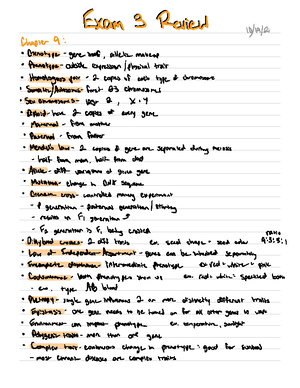 Exam 3 Review
Chapter 9:
• Genotype - gene itself, allelic makeup
• Phenotype - outside expression / physical trait
• Homologous pair - 2 copies of each type of chromosome
• Somatic / Autosomes - first 23 chromosomes
• Sex chromosomes - X + Y
• Diploid - have 2 copies of every gene
• Maternal - from mother
• Paternal - from father
• Mendel's law - 2 copies of gene are separated during meiosis
- half from mom, half from dad
• Allele - diff. variations of given gene
• Mutation - change in DNA sequence
• Genetic cross - controlled mating experiment
- P generation - parental generation /
- results in F1 generation
- F2 generation is F1 being crossed
• Dihybrid crosses - 2 diff traits ex. seed shape + seed color
ratio
9:3:3:1
• Law of Independent Assortment - genes can be inherited separately
• Incomplete dominance - Intermediate phenotype ex. red + white = pink
• Codominance - both phenotypes shown ex. red + white = speckled both
- ex. type AB blood
• Pleiotropy - single gene influences 2 or more distinctly different traits
• Epistasis - one gene needs to be turned on for all other genes to work
• Environment can impact phenotype ex. temperature, sunlight
• Polygenic traits - more than one gene
• Complex trait - continuous change in phenotype : good for survival
- most common diseases are complex traits